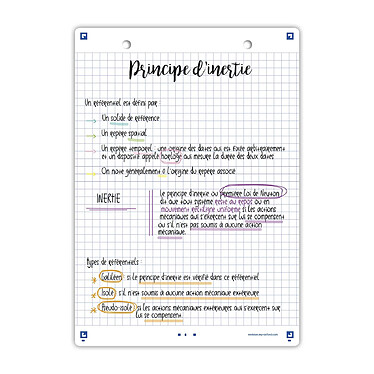 Principe d'inertie
Un référentiel est défini par :
Un solide de référence
Un repère spatial
Un repère temporel : une origine des dates qui est fixée arbitrairement
et un dispositif appelé horloge qui mesure la durée des deux dates
On note généralement O l'origine du repère associé
INERTIE
le principe d'inertie ou première Loi de Newton
dit que tout système reste au repos ou en
mouvement rectiligne uniforme si les actions
mécaniques qui s'exercent sur lui se compensent
ou s'il n'est pas soumis à aucune action
mécanique.
Types de référentiels :
Galiléen si le principe d'inertie est vérifié dans ce référentiel
Isolé s'il n'est soumis à aucune action mécanique extérieure
Pseudo-isolé si les actions mécaniques extérieures qui s'exercent sur
lui se compensent